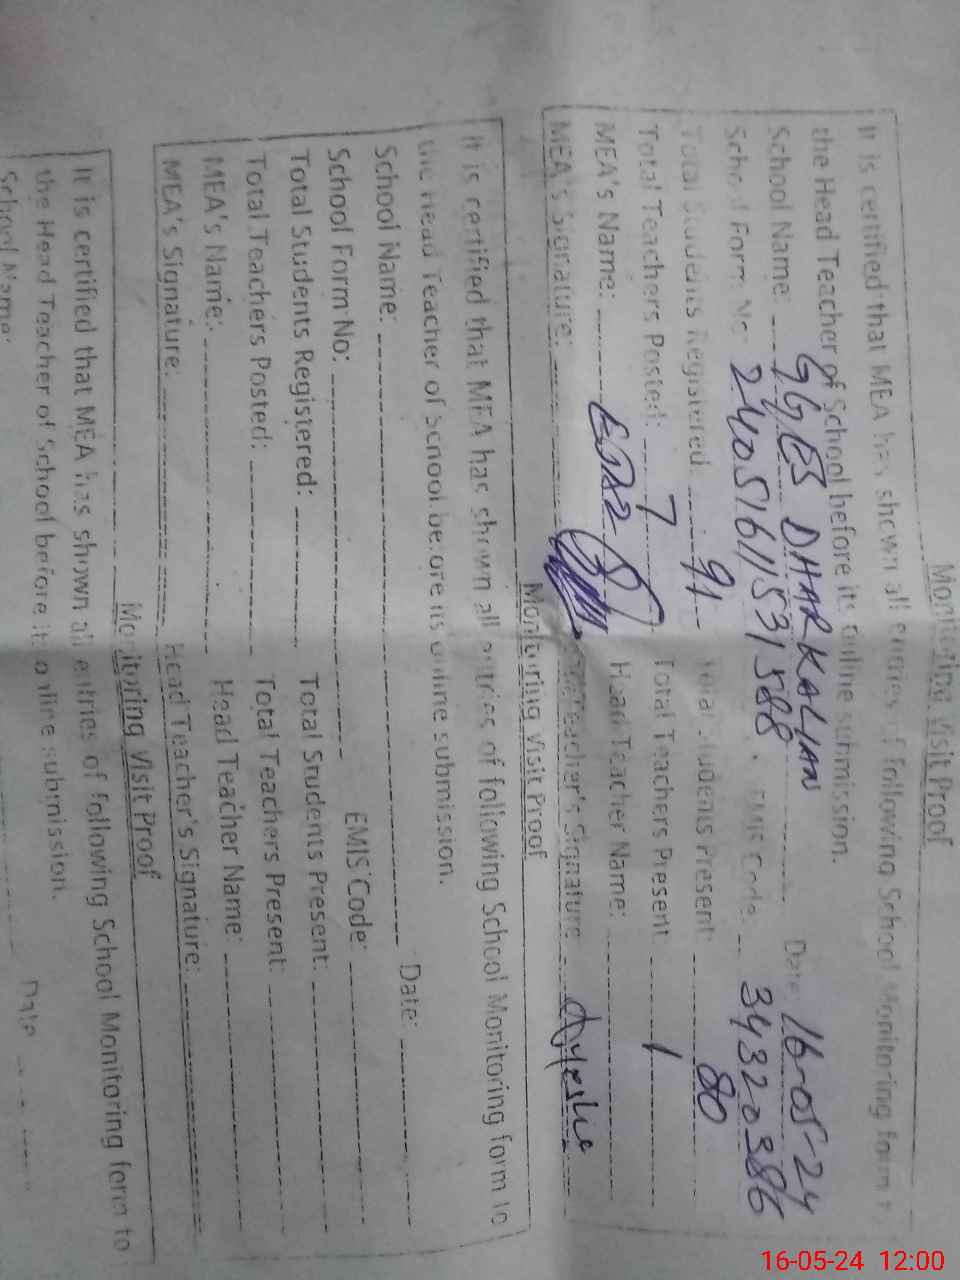 Monitoring Visit Proof
It is certified that MEA has shown all entries of following School Monitoring form to
the Head Teacher of School before its online submission.
School Name: GGES DHAR KALIAN Date: 16-05-24
School Form No: EMIS Code: 34320386
Total Students Registered: 91 Total Students Present: 80
Total Teachers Posted: 7 Total Teachers Present: 1
MEA's Name: Head Teacher Name:
MEA's Signature: Head Teacher's Signature:
Monitoring Visit Proof
It is certified that MEA has shown all entries of following School Monitoring form to
the Head Teacher of School before its online submission.
School Name: Date:
School Form No: EMIS Code:
Total Students Registered: Total Students Present:
Total Teachers Posted: Total Teachers Present:
MEA's Name: Head Teacher Name:
MEA's Signature: Head Teacher's Signature:
Monitoring Visit Proof
It is certified that MEA has shown all entries of following School Monitoring form to
the Head Teacher of School before its online submission.
School Name: Date
16-05-24 12:00